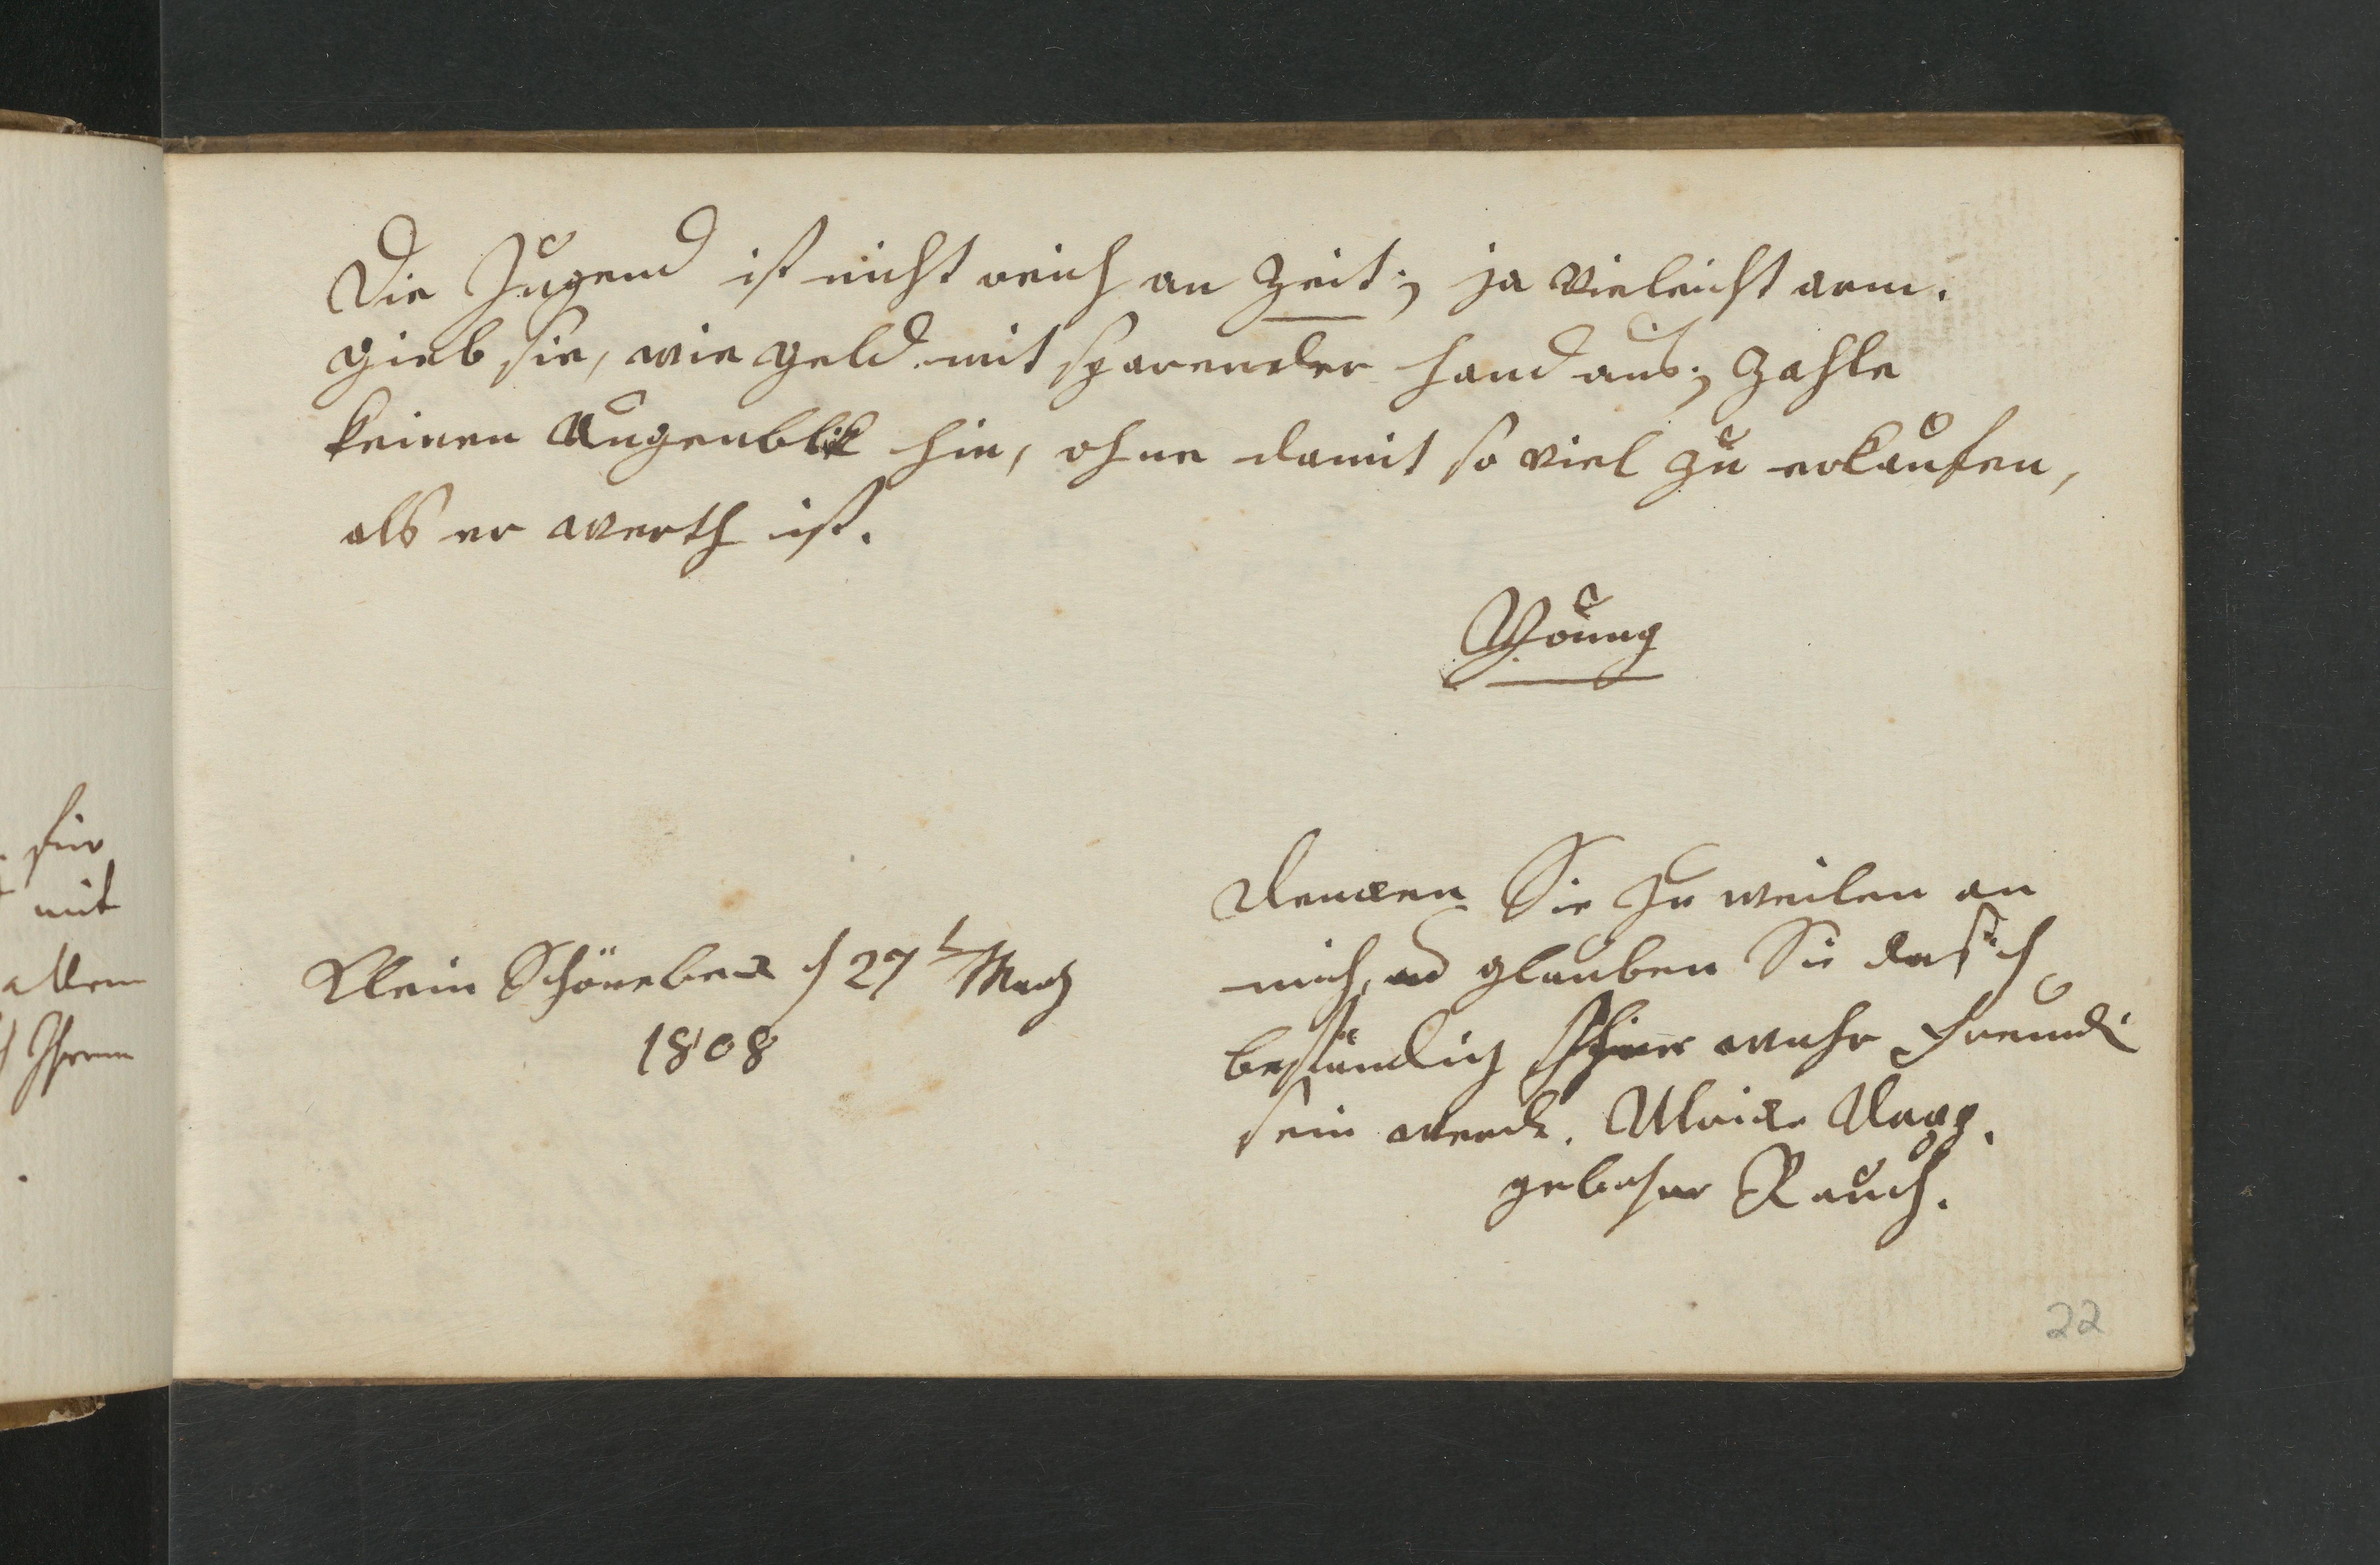 Die Jugend ist nicht reich an Zeit; ja vieleicht arm.
gieb sie, wie geld mit sparender hand aus; zahle
keinen Augenblik hin, ohne damit so viel zu erkaufen,
als er werth ist.
Young
Klein Schönebeck d 27 t Merz
1808
Dencken Sie zu weilen an
mich, und glauben Sie das ich
beständig wahre Freundi
sein werde. Ulricke
gebohrne Rauch.
22
für
mit
allem
Ihrem